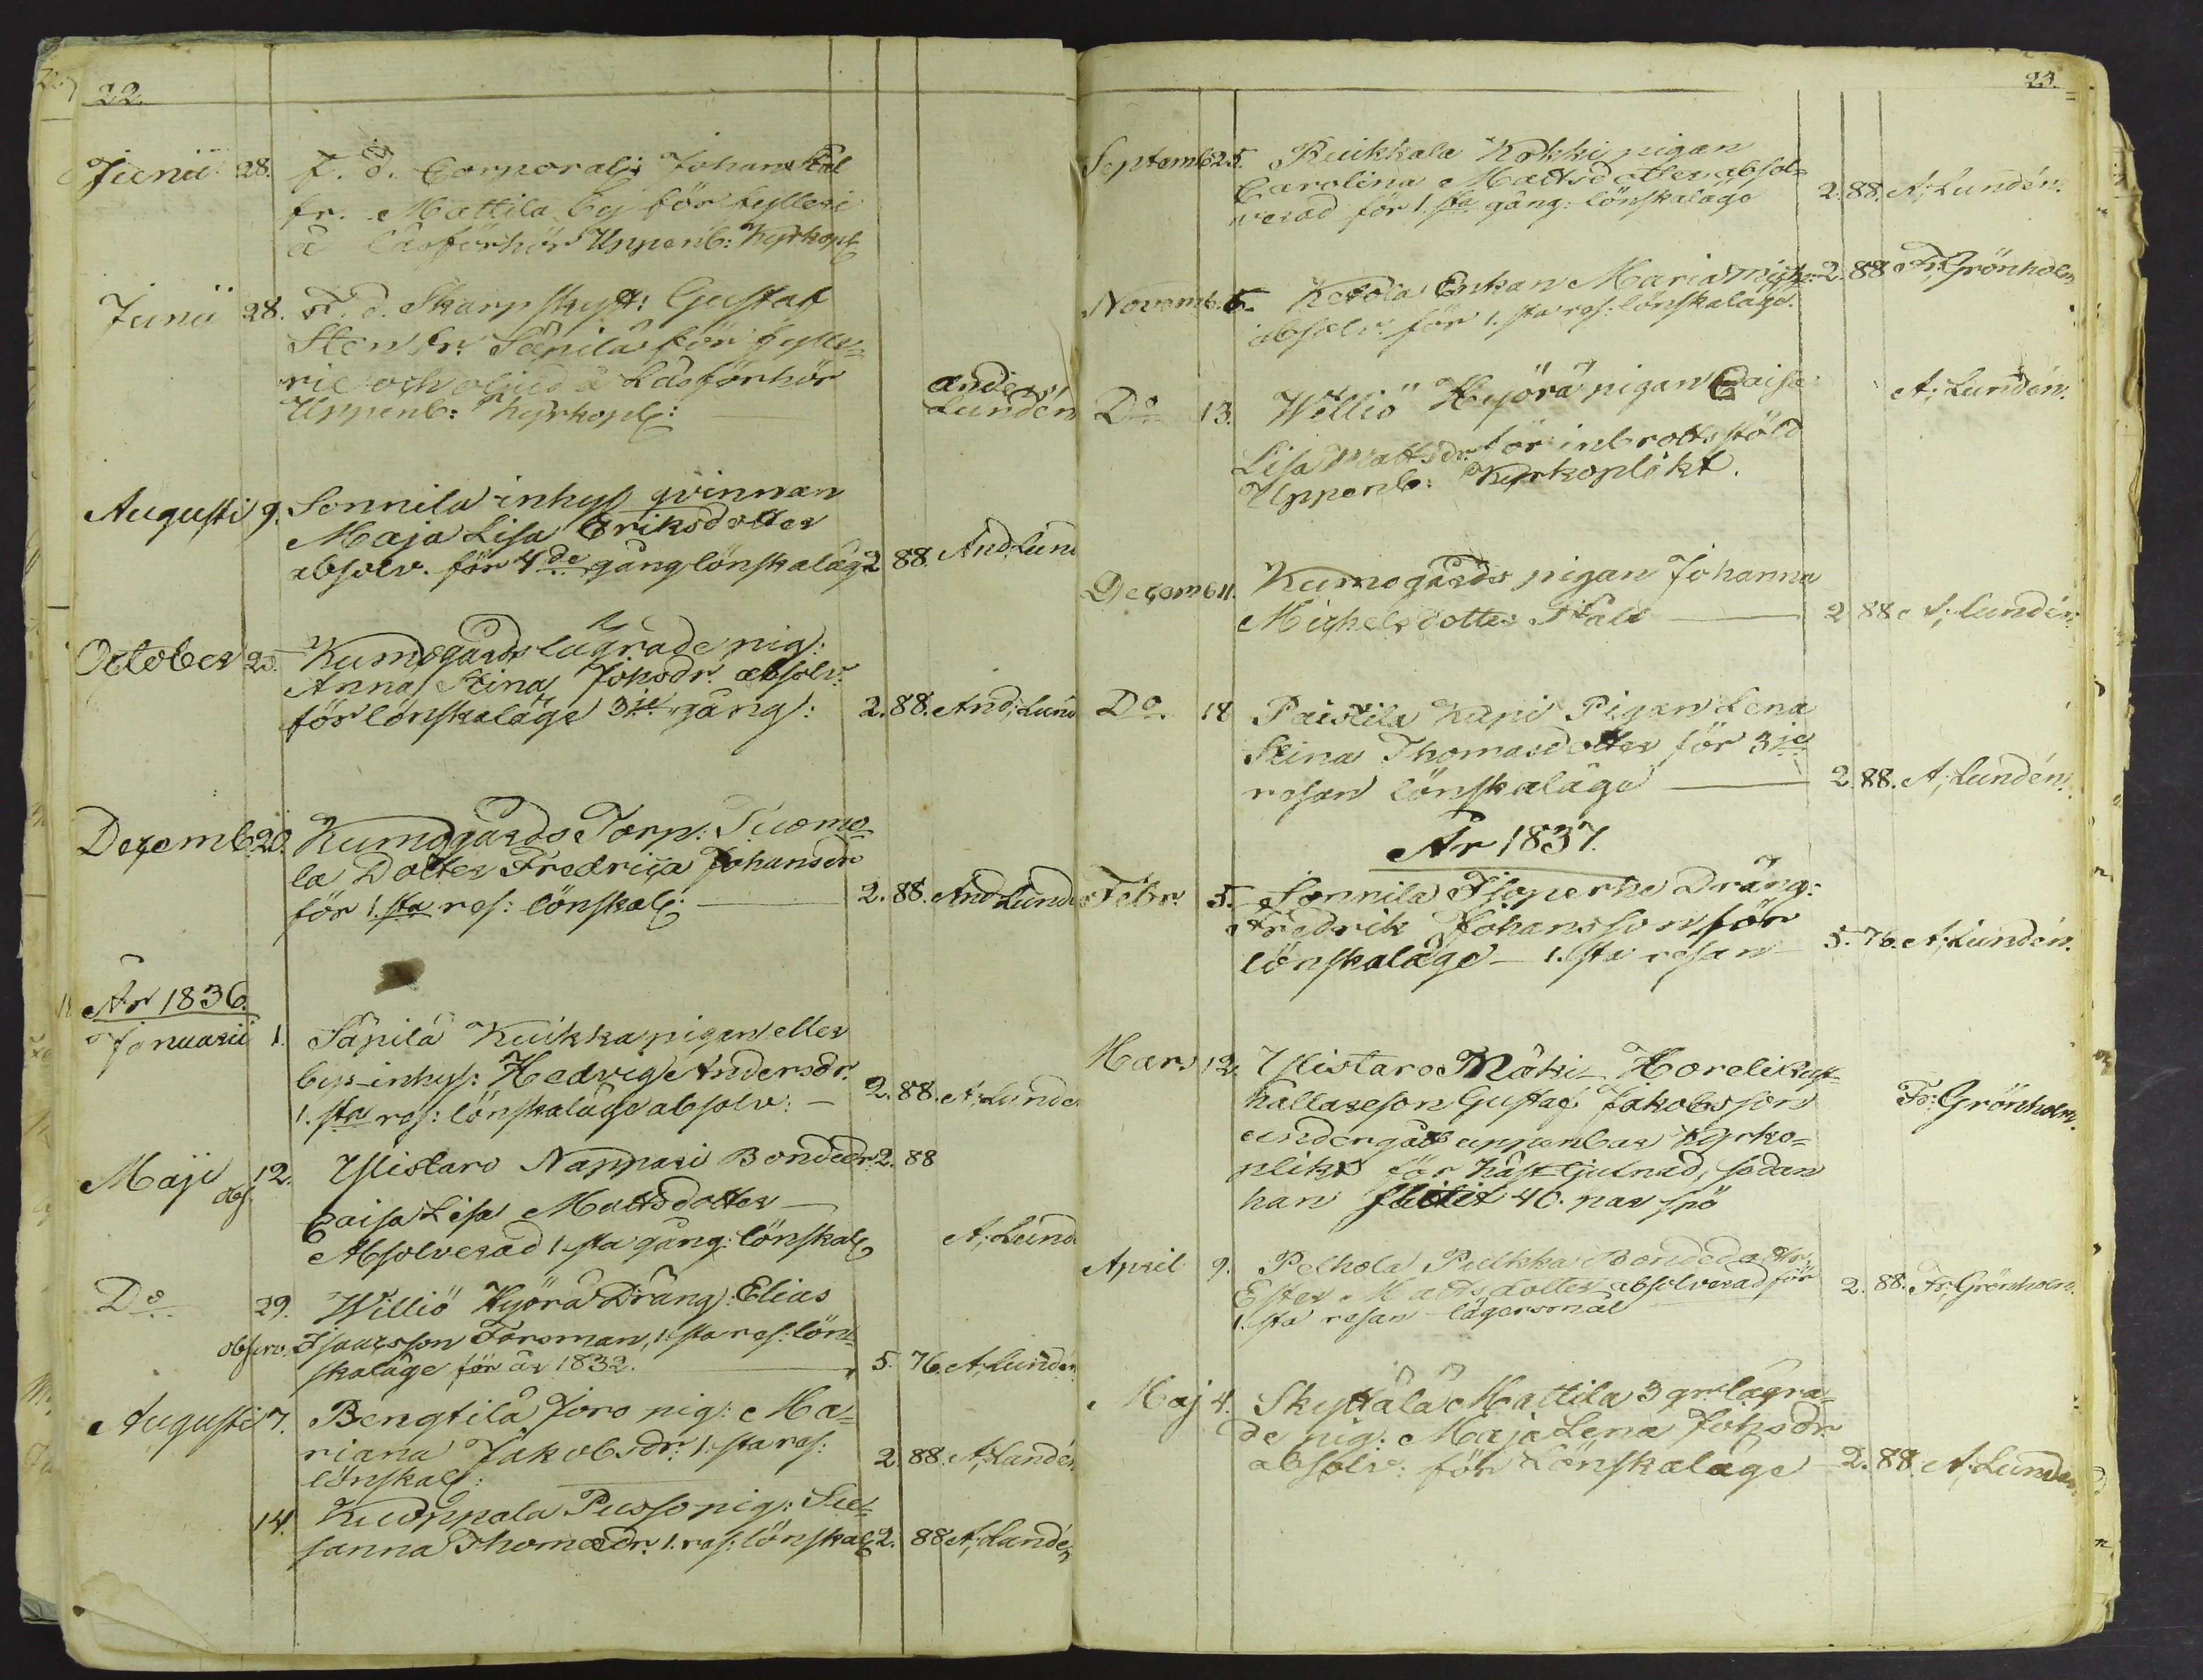 22.
Junii 28. F. d. Corporal: Johan Stål
fr. Mattila by för fylleri
å Läsförhör Uppenb: Kyrkopl:
Junii 28. F. d. Skarpskytt: Gustaf
Sten fr. Säpilä för fylle=
rie och oljud å Läsförhör
Uppenb: Kyrkopl: Anders Lundén
Augusti 9. Sonnila inhys qvinnan
Maja Lisa Eriksdotter
absolv. för 4de gång lönskaläg 2 88. And; Lund
October 25. Kumogårds lägrade pig:
Anna Stina Johsdr. absolv:
för lönskaläge 3je gång: 2. 88. And; Lund
Decemb. 20. Kumogårds Torp: Tuomo=
la Dotter Fredrica Johansdr
för 1.sta res: lönskal: 2. 88. And Lund
År 1836.
Januarii 1. Säpilä Kuikka pigan eller
bys-inhys: Hedvig Andersdr.
1.sta res: lönskaläge absolv: — 2. 88. A; Lunde
Maji 12. Ylistaro Nappari Bondedr. 2. 88
obs. Caisa Lisa Mattsdotter —
Absolverad 1.sta gång: lönskal: A; Lund
Do 29. Williö Hyörä Dräng: Elias
observ. Isaacsson Forsman, 1.sta res: lön=
skaläge för år 1832. 5. 76. A; Lundén
Augusti 7. Bengtilä Joro pig: Ma=
riana Jakobsdr: 1.sta res:
lönskal: 2. 88. A; Lundén
14. Kuoppala Pusso pig: Su=
sanna Thomasdr: 1. res: lönskal: 2. 88 A; Lundén
23.
Septemb. 25. Ruikkala Kokki pigan
Carolina Mattsdotter absol=
verad för 1.sta gång: lönskaläge 2. 88. A; Lundén.
Novemb. 6. Ketola Enkan Maria Mich: 2. 88 Fr: Grönholm
absolv: för 1.sta res: lönskaläge.
Do 13. Williö Hyörä pigan Caisa A; Lundén.
Lisa Mattsdr: för inbrotts stöld
Uppenb: Kyrkoplikt.
Decemb 11. Kumogårds pigan Johanna
Michelsdotter Stål — 2 88 A; Lundén.
Do. 18 Paistila Kupi Pigan Lena
Stina Thomasdotter för 3je
resan lönskaläge — 2. 88. A; Lundén.
År 1837.
Febr. 5. Sonnila Dräng:
Fredrik Johansson för
lönskaläge — 1.sta resan — 5. 76. A; Lundén.
Mars 12. Ylistaro Mäki-
Gustaf Jakobsson Fr: Grönholm.
undergått uppenbar Kyrko=
plikt för häst tjufnad, sedan
han slitit 40. par spö
April 9. Pelhola Pukka Bondedotter,
Ester Mattsdotter absolverad för 2. 88. Fr: Grönholm.
1.sta resan lägersmål
Maj 4. Skyttälä Mattila 3 gr. lägra=
de pig: Maja Lena Johsdr
absolv: för Lönskaläge — 2. 88. A; Lundén.